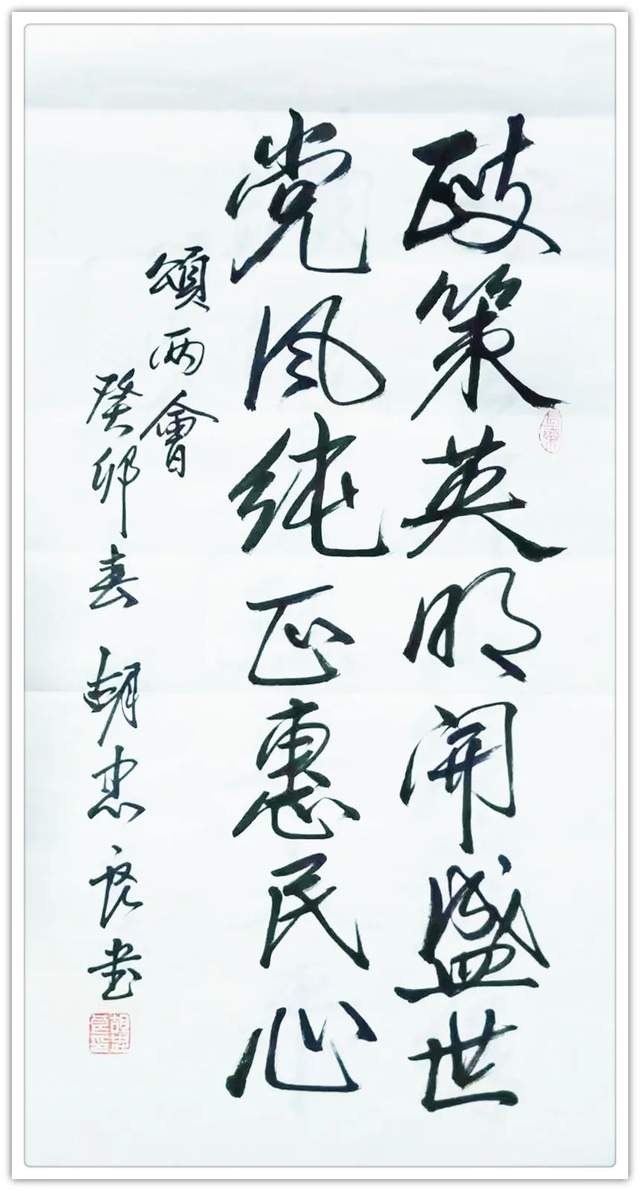 政策英明开盛世
党风纯正惠民心
頌两會
癸卯春 胡忠良书